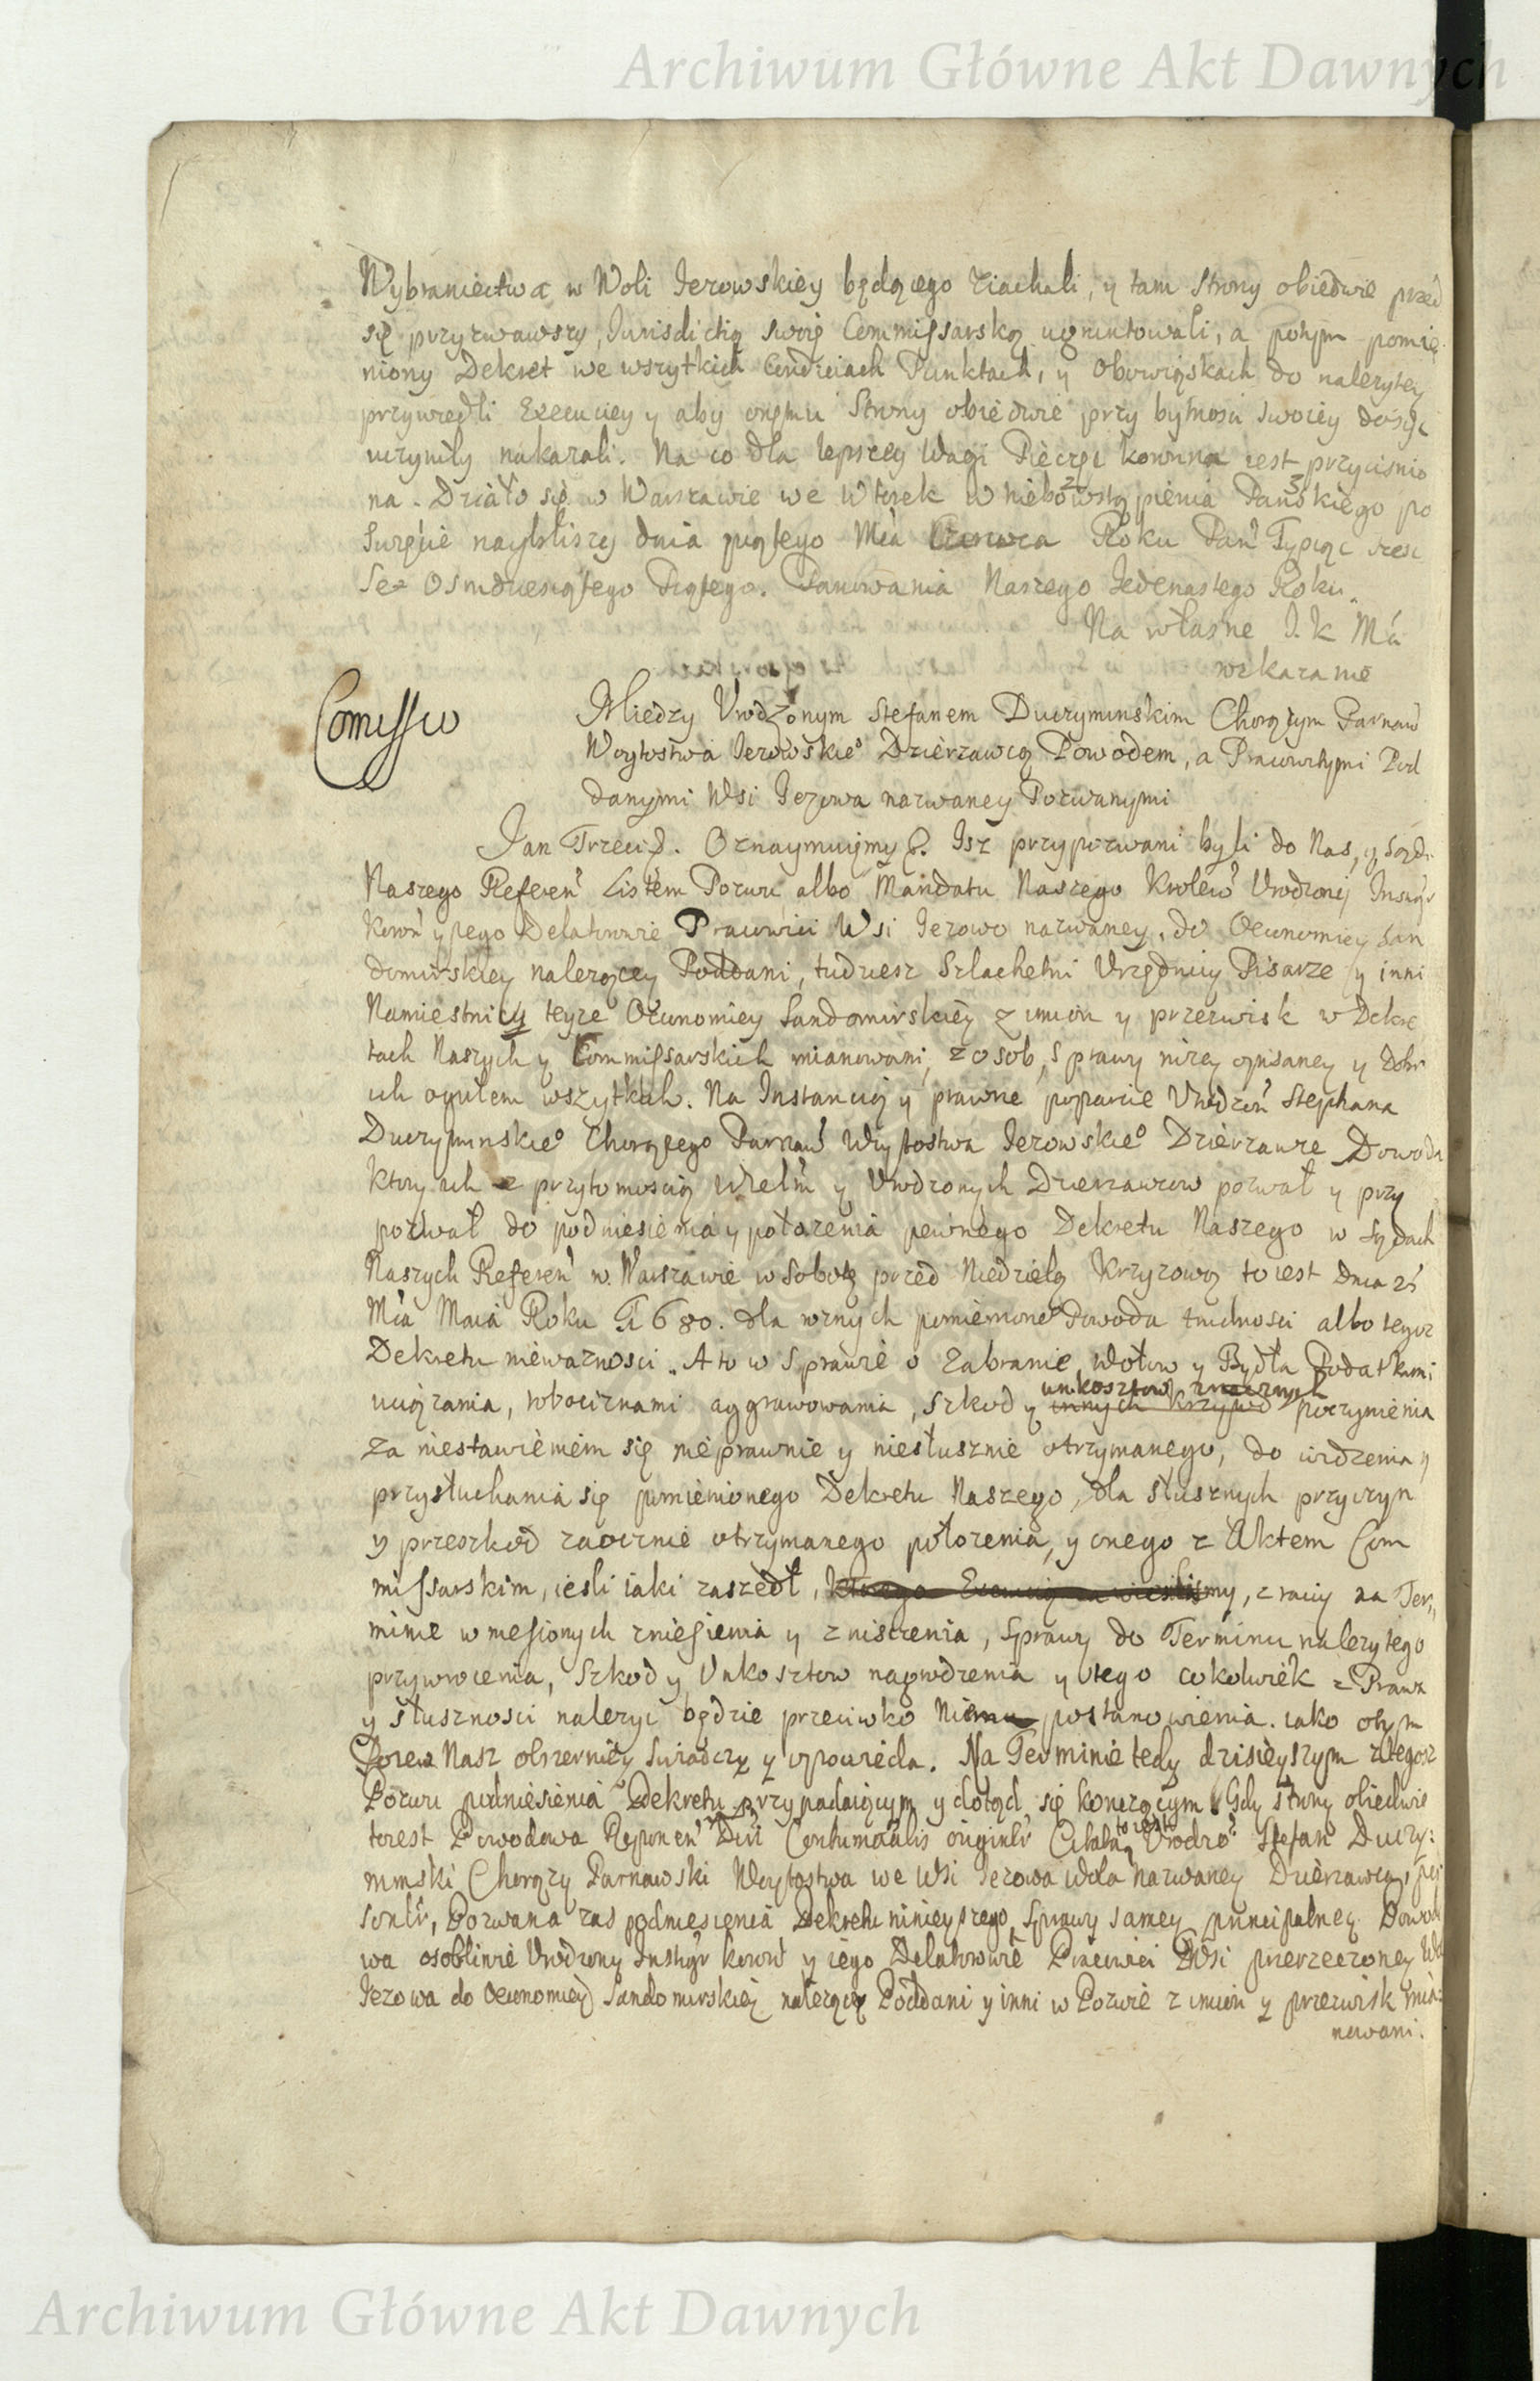 Archiwum Główne Akt Dawnych
Wybraniectwa w Woli Jezowskiey będącego ziachali, y tam Strony obiedwie przed
się przyzwawszy, Jurisdictią swoię Commissarską ugruntowali, a potym pomie
niony Dekret we wszytkich Punktach, y Obowiązkach do należytey
przywiedli Execuciey y aby onemu Strony obiedwie przy bytnosci swoiey dosyc
uczyniły nakazali. Na co dla lepszey wagi Pieczęc koronna iest przycisnio
na. Działo się w Warszawie we Wtorek w Niebowstąpienia Panskiego po
Swięcie naybliższy dnia piątego Mca Czerwca Roku Pan Tysiąc szesc
Set Osmdziesiątego Piątego. Panowania Naszego Jedenastego Roku.
Na własne J. K Mci
wskazanie
Comissio
Miedzy Urodzonym Stefanem Duczyminskim Chorążym Parnaw
Woytostwa Jezowskie° Dzierzawcą Powodem, a Pracowitymi Pod
danymi Wsi Jezowa nazwaney Pozwanymi
Jan Trzeci &. Oznaymuiemy &. Isz przypozwani byli do Nas, y Sądu
Naszego Referen Listem Pozwu albo Mandatu Naszego Krolew Urodzony Instigr
Koron y iego Delatorowie Pracowici Wsi Jezowo nazwaney, do Oeconomiey San
domirskiey nalezącey Poddani, tudziesz Szlachetni Urzędnicy Pisarze y inni
Namiestnicy teyze Oeconomiey Sandomirskiey z imion y przezwisk w Dekre
tach Naszych y Commissarskich mianowani, z osob, sprawy nizey opisaney y dobr
ich ogułem wszytkich. Na Instancią y prawne poparcie Urodzon Stephana
Duczyminskie° Chorążego Parnaw Woytostwa Jezowskie° Dzierzawce Powoda
ktory ich z przytomnoscią Wielm y Urodzonych Dzierzawcow pozwał y przy
pozwał do podniesienia y położenia pewnego Dekretu Naszego w Sądach
Naszych Referen w Warszawie w Sobotę przed Niedzielą Krzyzową to iest dnia 25
Mca Maia Roku 1680. dla roznych pomienione° Powoda trudnosci albo tegosz
Dekretu niewaznosci. A to w Sprawie o Zabranie wołow y Bydła Podatkami
uciązania, robociznami aggrawowania, szkod y unkosztow znacznych innych krzywd poczynienia
za niestawieniem się nieprawnie y niesłusznie otrzymanego, do widzenia y
przysłuchania się pomienionego Dekretu Naszego, dla słusznych przyczyn
y przeszkod zaocznie otrzymanego położenia, y onego z Aktem Com
missarskim, iesli iaki zaszedł, z racij na Ter,
minie wniesionych zniesienia y zniszczenia, sprawy do Terminu nalezytego
przywrocenia, Szkod y Unkosztow nagrodzenia y tego cokolwiek z Prawa
y słusznosci nalezyc będzie przeciwko postanowienia. iako o tym
Pozew Nasz obszerniey swiadczy y opowieda. Na Terminie tedy dzisieyszym z tegosz
Pozwu podniesienia Dekretu przypadaiącym y dotąd się konczącym Gdy strony obiedwie
to iest Powodowa Reponen Citata to iest Urodzo: Stefan Duczy:
minski Chorązy Parnawski Woytostwa we Wsi Jezowa Wola nazwaney Dzierzawca,
Pozwana zas podniesienia Dekretu ninieyszego, Sprawy samey principalney Powodo
wa osobliwie Urodzony Instigr koron y iego Delatorowie Pracowici Wsi przerzeczoney
Jezowa do Oeconomiey Sandomirskiey nalezący Poddani y inni w Pozwie z imion y przezwisk mia:
nowani.
Archiwum Główne Akt Dawnych